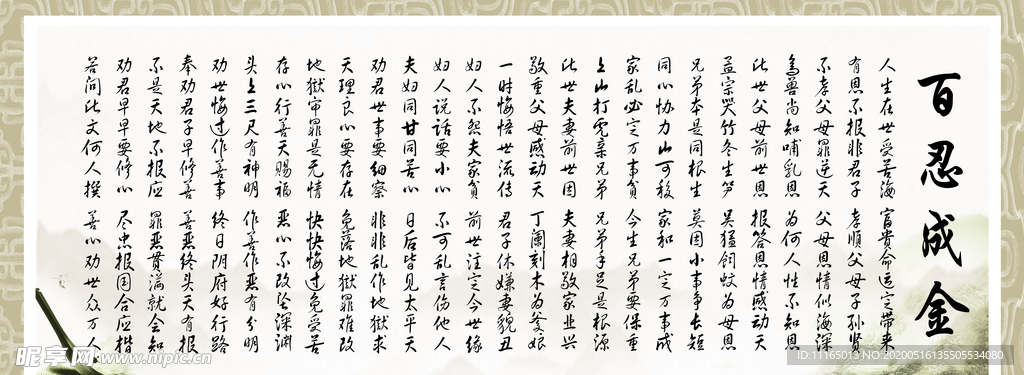 百忍成金
人生在世受苦海 富贵命运定带来
有恩不报非君子 孝顺父母子孙贤
不孝父母罪逆天 父母恩情似海深
鸟兽尚知哺乳恩 为何人性不知恩
此世父母前世恩 报答恩情感动天
孟宗哭竹冬生笋 吴猛饲蚊为母恩
兄弟本是同根生 莫因小事争长短
同心协力山可移 家和一定万事成
家乱必定万事贫 今生兄弟要保重
上山打虎亲兄弟 兄弟手足是根源
此世夫妻前世因 夫妻相敬家业兴
敬重父母感动天 丁阑刻木为爹娘
一时悔悟世流传 君子休嫌妻貌丑
妇人不怨夫家贫 前世注定今世缘
妇人说话要小心 不可乱言伤他人
夫妇同甘同苦心 日后皆见太平天
劝君世事要细察 非非乱作地狱求
天理良心要存在 免落地狱罪难改
地狱审罪是无情 快快悔过免受苦
存心行善天赐福 恶心不改坠深渊
头上三尺有神明 作善作恶有分明
劝世悔过作善事 终日阴府好行路
奉劝君子早修善 善恶终头天有报
不是天地不报应 罪恶贯满就会知
劝君早早要修心 尽忠报国合应楷
若问此文何人撰 善心劝世众万人
昵享网 www.nipic.cn
ID:11165013 NO:20200516135505534080